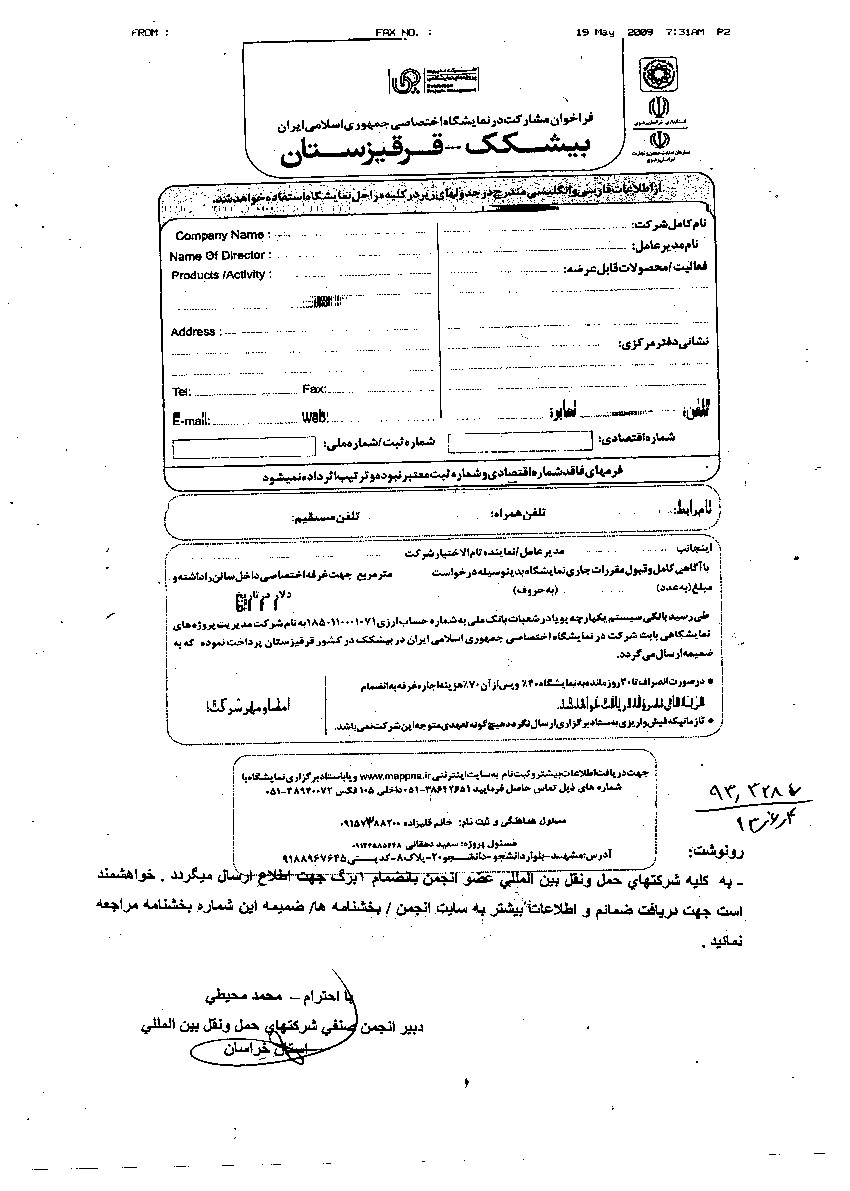 FROM : FAX NO. : 19 May 2009 7:31AM P2
فراخوان مشارکت در نمایشگاه اختصاصی جمهوری اسلامی ایران
بیشکک - قرقیزستان
از اطلاعات فارسی و انگلیسی مندرج در جدولهای زیر در کلیه مراحل نمایشگاه استفاده خواهد شد.
نام کامل شرکت:
Company Name :
نام مدیر عامل:
Name Of Director :
فعالیت / محصولات قابل عرضه:
Products /Activity :
نشانی دفتر مرکزی:
Address :
Tel: Fax:
تلفن: نمابر:
E-mail: Web:
شماره اقتصادی: شماره ثبت / شماره ملی:
فرمهای فاقد شماره اقتصادی و شماره ثبت معتبر نبوده و ترتیب اثر داده نمیشود
نام رابط: تلفن همراه: تلفن مستقیم:
اینجانب مدیر عامل / نماینده تام الاختیار شرکت
با آگاهی کامل و قبول مقررات جاری نمایشگاه بدینوسیله درخواست متر مربع جهت غرفه اختصاصی داخل سالن را داشته و
مبلغ (به عدد) (به حروف) دلار در تاریخ
طی رسید بانکی سیستم یکپارچه پویا در شعبات بانک ملی به شماره حساب ارزی ۱۸۵۰۱۱۰۰۰۱۰۷۱ به نام شرکت مدیریت پروژه های
نمایشگاهی بابت شرکت در نمایشگاه اختصاصی جمهوری اسلامی ایران در بیشکک در کشور قرقیزستان پرداخت نموده که به
ضمیمه ارسال می گردد.
* در صورت انصراف تا ۲۰ روز مانده به نمایشگاه ۴۰٪ و پس از آن ۷۰٪ هزینه اجاره غرفه به انضمام
* تا زمانیکه فیش واریزی به ستاد برگزاری ارسال نگردد هیچ گونه تعهدی متوجه این شرکت نمی باشد.
امضا و مهر شرکت:
جهت دریافت اطلاعات بیشتر و ثبت نام به سایت اینترنتی www.mappna.ir و یا با ستاد برگزاری نمایشگاه با
شماره های ذیل تماس حاصل فرمایید ۳۸۶۴۲۶۵۱-۰۵۱ داخلی ۱۰۵ فکس ۳۸۹۴۰۰۷۲-۰۵۱
مسئول هماهنگی و ثبت نام: خانم قلیزاده ۰۹۱۵۷۳۸۸۲۰۰
مسئول پروژه: سعید دهقانی
آدرس: مشهد- بلوار دانشجو- دانشجو ۲۰- پلاک ۸- کد پستی ۹۱۸۸۹۶۷۶۴۵
رونوشت:
- به کلیه شرکتهاي حمل ونقل بین المللي عضو انجمن بانضمام ۱برگ جهت اطلاع ارسال میگردد . خواهشمند
است جهت دریافت ضمائم و اطلاعات بیشتر به سایت انجمن / بخشنامه ها/ ضمیمه این شماره بخشنامه مراجعه
نمائید .
با احترام – محمد محیطي
دبیر انجمن صنفي شرکتهاي حمل ونقل بین المللي
استان خراسان